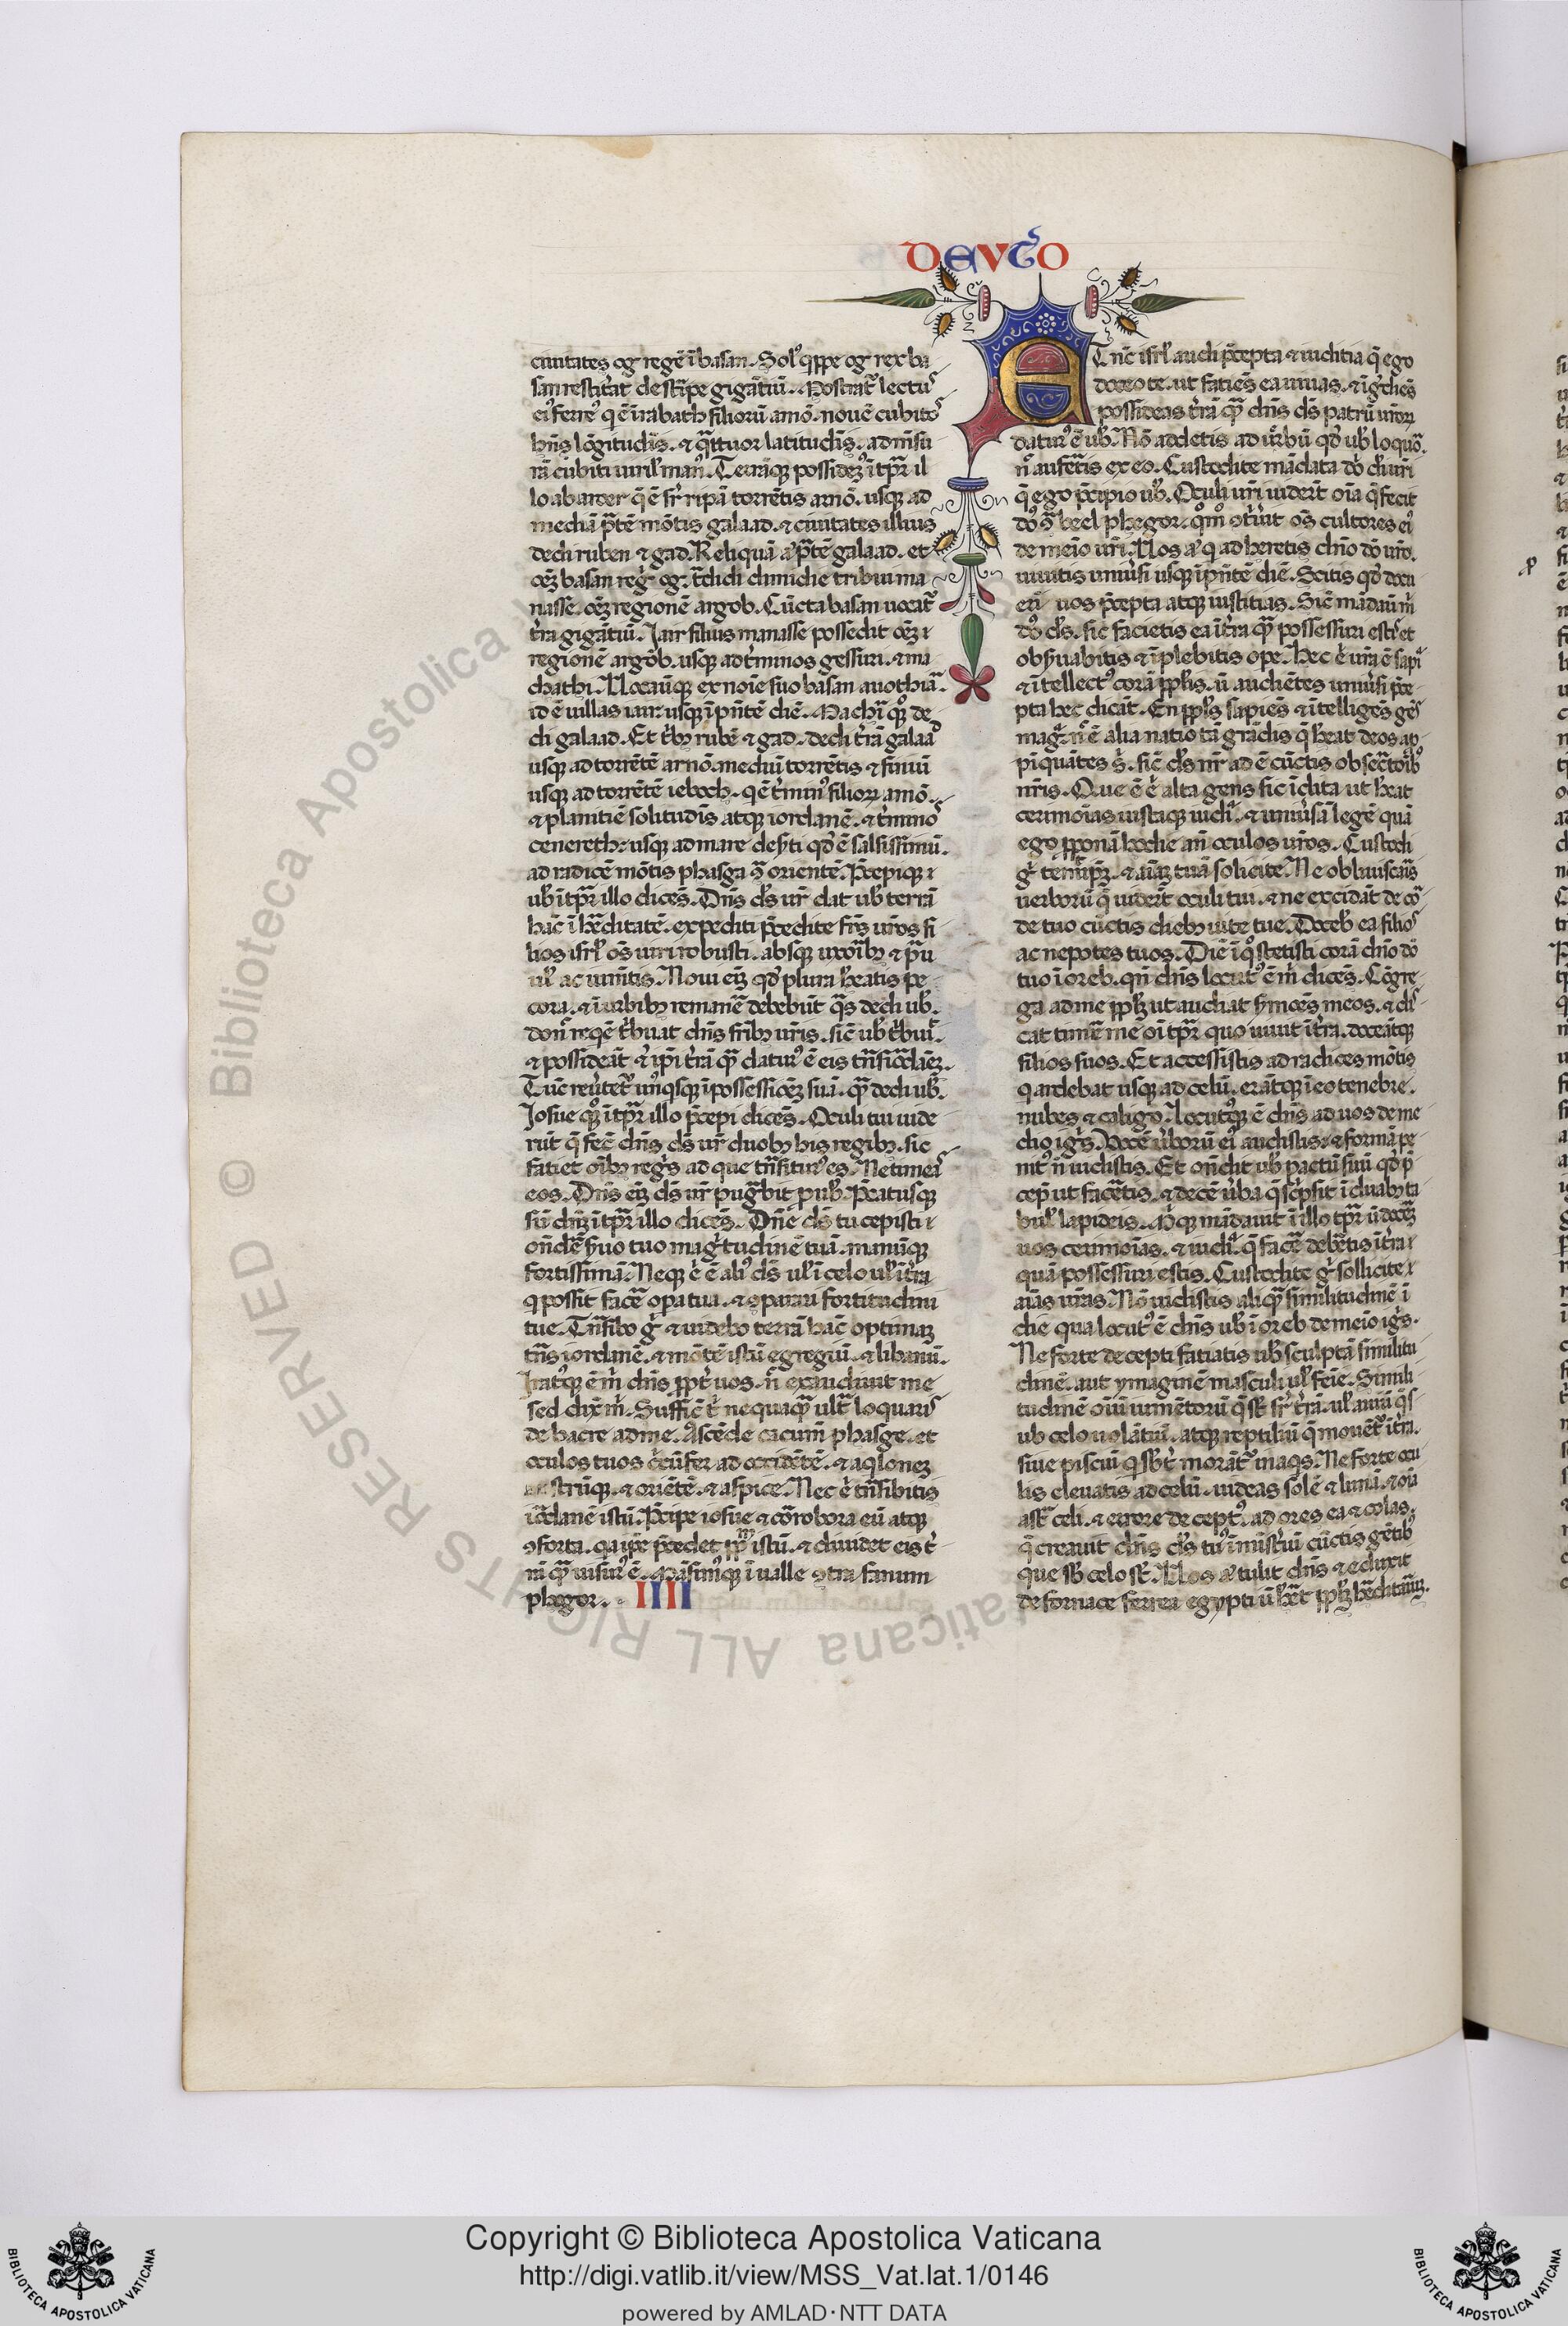 DEUTO
ciuitates og regē ī basan. Sol᷒ q̄ppe og rex ba
san restit̾at de stirpe gigātiū. Mostrat᷒ lectu᷒
ei᷒ ferre᷒ q̄ ē ī rabath filioru᷒ amō. nouē cubito᷒
hn̄s lōgitudīs. ⁊ q̄ttuor latitudīs. ad mēsu
rā cubiti uirilꝭ man᷒. Terrāq᷒ possidem᷒ ī tp̄r il
lo ab aroer q̄ ē sr̄ ripā torrētis arnō. usq᷒ ad
mediā p̄tē mōtis galaad. ⁊ ciuitates illius
dedi ruben ⁊ gad. Reliquā aͥ p̄tē galaad. et
oēꝫ basan regͥ og. t̄didi dimidie tribui ma
nasse. oēꝫ regionē argob. Cūcta basan uocat᷒
t̄ra gigātiū. Jair filius manasse possedit oēꝫ
regionē argob. usq᷒ ad t̄minos gessuri. ⁊ ma
chathi. Uocauitq᷒ ex noīe suo basan auothiā.
id ē uillas iair. usq᷒ ī p̄ntē diē. Machir q᷒ de
di galaad. Et t̄b᷒ rubē ⁊ gad. dedi t̄rā galaad
usq᷒ ad torrētē arnō. mediū torrētis ⁊ finiū
usq᷒ ad torrētē ieboch. q̄ ē t̄min᷒ filioꝝ amō.
⁊ planitiē solitudīs atq᷒ iordanē. ⁊ t̄mino᷒
cenereth. usq᷒ ad mare deserti qd̄ ē salsissimū.
ad radicē mōtis phasga ꝯ̄ orientē. P̄cepiq᷒
ub̄ ī tp̄r illo dicēs. Dn̄s ds̄ ur̄ dat ub̄ terrā
hāc ī hēditatē. expediti p̄cedite fr̄s ur̄os fi
lios isrl̄ os̄ uiri robusti. absq᷒ uxoīb᷒ ⁊ p̄uu
ul̄ ac iumētis. Noui eīꝫ qd̄ plura heatis pe
cora. ⁊ ī urbib᷒ remanē debebūt q̄s dedi ub̄.
don̄ reqē t̄buat dn̄s fr̄ib᷒ ur̄is. sic̄ ub̄ t̄buit.
⁊ possideāt ⁊ ip̄i t̄rā q̄ daturͦ ē eis tn̄s iordāeꝫ.
Tūc reu̾tet᷒ un᷒q̄sq᷒ ī possessiōeꝫ suā. quā dedi ub̄.
Josue q᷒ ī tp̄r illo p̄cepi dicēs. Oculi tui uide
rūt q̄ fec̄ dn̄s ds̄ ur̄ duob᷒ his regib᷒. sic
fatiet oīb᷒ regͥs ad que tn̄situr᷒ es. Ne timeas
eos. Dn̄s eīꝫ ds̄ ur̄ pugͣbit p ub̄. P̄catusq᷒
sū dn̄ꝫ ī tp̄r illo dicēs. Dn̄e ds̄ tu cepisti
on̄dē s̾uo tuo magͥtudinē tuā. manūq᷒
fortissimā. Neq᷒ ē ē ali᷒ ds̄ ul̄ ī celo ul̄ ī t̄ra
q possit facē opa tua. ⁊ ꝯparari fortitudini
tue. Tn̄sibo gͥ ⁊ uidebo terrā hāc optimaꝫ
tn̄s iordanē. ⁊ mōtē istū egregiū. ⁊ libanū.
Iratusq᷒ ē m̄ dn̄s pp̄t̄ uos. n̄ exaudiuit me
sed dix̄ m̄. Sufficͥ t̄ nequaq̄ ult̄ loquaris
de hac re ad me. Ascēde cacumē phasge. et
oculos tuos c̾cūfer ad occidētē. ⁊ aq̄lonēꝫ
austrūq᷒. ⁊ oriētē. ⁊ aspice. Nec ē tn̄sibitis
iordanē istū. P̄cipe iosue ⁊ corrobora eū atq᷒
ꝯforta. qa ip̄e p̄cedet pp̄lm istū. ⁊ diuidet eis t̄
rā quā uisur᷒ ē. Māsim᷒q᷒ ī ualle ꝯtra fanum
phegor. IIII
E T nc̄ isrl̄ audi p̄cepta ⁊ iudicia q̄ ego
doceo te. ut fatiēs ea uiuas. ⁊ īgͥdiēs
possideas t̄rā quā dn̄s ds̄ patrū ur̄oꝝ
datur᷒ ē ub̄. Nō addetis ad u̾bū qd̄ ub̄ loquor.
n̄ aufertis ex eo. Custodite mādata dn̄i dī ur̄i
q̄ ego p̄cipio ub̄. Oculi ur̄i uider̄t oīa q̄ fecit
dn̄s ꝯ̄ beel phegor. quō ꝯt̾uit os̄ cultores ei᷒
de medio ur̄i. Uos aͥ q adheretis dn̄o dō ur̄o.
uiuitis uniu̾si usq᷒ ī p̄ntē diē. Scitis qd̄ docu
eri uos p̄cepta atq᷒ iustitias. Sic̄ mādauit m̄
dn̄s ds̄. sic facietis ea ī t̄ra quā possessuri estis. et
obseruabitis ⁊ īplebitis ope. Hec ē ur̄a ē sapīa
⁊ ītellect᷒ corā pp̄lis. ut audiētes uniu̾si p̄ce
pta hec dicāt. En pp̄ls̄ sapiēs ⁊ ītelligēs gēs
magͣ. n̄ ē alia natio tā grādis q̄ heat deos ap
pīquātes s̄. sic̄ ds̄ nr̄ adē cūctis obsec̄toīb᷒
nr̄is. Que ē ē alta gens sic īclita ut heat
cerimoīas iustaq᷒ iudicia. ⁊ uniu̾sā legē quā
ego pponā hodie an̄ oculos ur̄os. Custodi
gͥ temetīpꝫ. ⁊ aīaꝫ tuā solicite. Ne obliuiscaris
uerborū q̄ uider̄t oculi tui. ⁊ ne excidāt de cor
de tuo cūctis dieb᷒ uite tue. Doceb̄ ea filios
ac nepotes tuos. Diē ī q᷒ stetisti corā dn̄o dō
tuo ī oreb. qn̄ dn̄s locut᷒ ē m̄ dicēs. Cōgre
ga ad me pp̄lꝫ ut audiāt s̾mōes meos. ⁊ dis
cāt timē me oī tp̄r quo uiuūt ī t̄ra. doceātq᷒
filios suos. Et accessistis ad radices mōtis
q ardebat usq᷒ ad celū. erātq᷒ ī eo tenebre.
nubes ⁊ caligo. Locutusq᷒ ē dn̄s ad uos de me
dio igͥs. Uocē u̾borū ei᷒ audistis. ⁊ formā pe
nit᷒ n̄ uidistis. Et on̄dit ub̄ pactū suū qd̄ p̄
cep̄ ut facētis. ⁊ decē u̾ba q̄ sc̾psit ī duab᷒ ta
bulꝭ lapideis. Miq᷒ mādauit ī illo tp̄r ut docēꝫ
uos cerimoīas. ⁊ iudicia. q̄ facē debētis ī t̄ra
quā possessuri estis. Custodite gͥ sollicite
aīas ur̄as. Nō uidistis aliq̄ similitudinē ī
die qua locut᷒ ē dn̄s ub̄ ī oreb de medio igͥs.
Ne forte decepti fatiatis ub̄ sculptā similitu
dinē. aut ymaginē masculi ul̄ feīe. Simili
tudinē oīum iumētorū q̄ st̄ sr̄ t̄rā. ul̄ auiū q̄ s
ub celo uolātiū. atq᷒ reptiliū q̄ mouēt᷒ ī t̄ra.
siue pisciū q sb̄ t̄ morāt᷒ in aqͥs. Ne forte ocu
lis eleuatis ad celū. uideas solē ⁊ lunā. ⁊ oīa
ast̄ celi. ⁊ errore decept᷒. adores ea ⁊ colas.
q̄ creauit dn̄s ds̄ tu᷒ ī mīst̾iū cūctis gētib᷒
que sb̄ celo st̄. Uos aͥ tulit dn̄s ⁊ eduxit
de fornace ferrea egypti ut hēt pp̄lꝫ hēditariūꝫ.
© Biblioteca Apostolica Vaticana ALL RIGHTS RESERVED
Copyright © Biblioteca Apostolica Vaticana
http://digi.vatlib.it/view/MSS_Vat.lat.1/0146
powered by AMLAD·NTT DATA
BIBLIOTECA APOSTOLICA VATICANA
BIBLIOTECA APOSTOLICA VATICANA